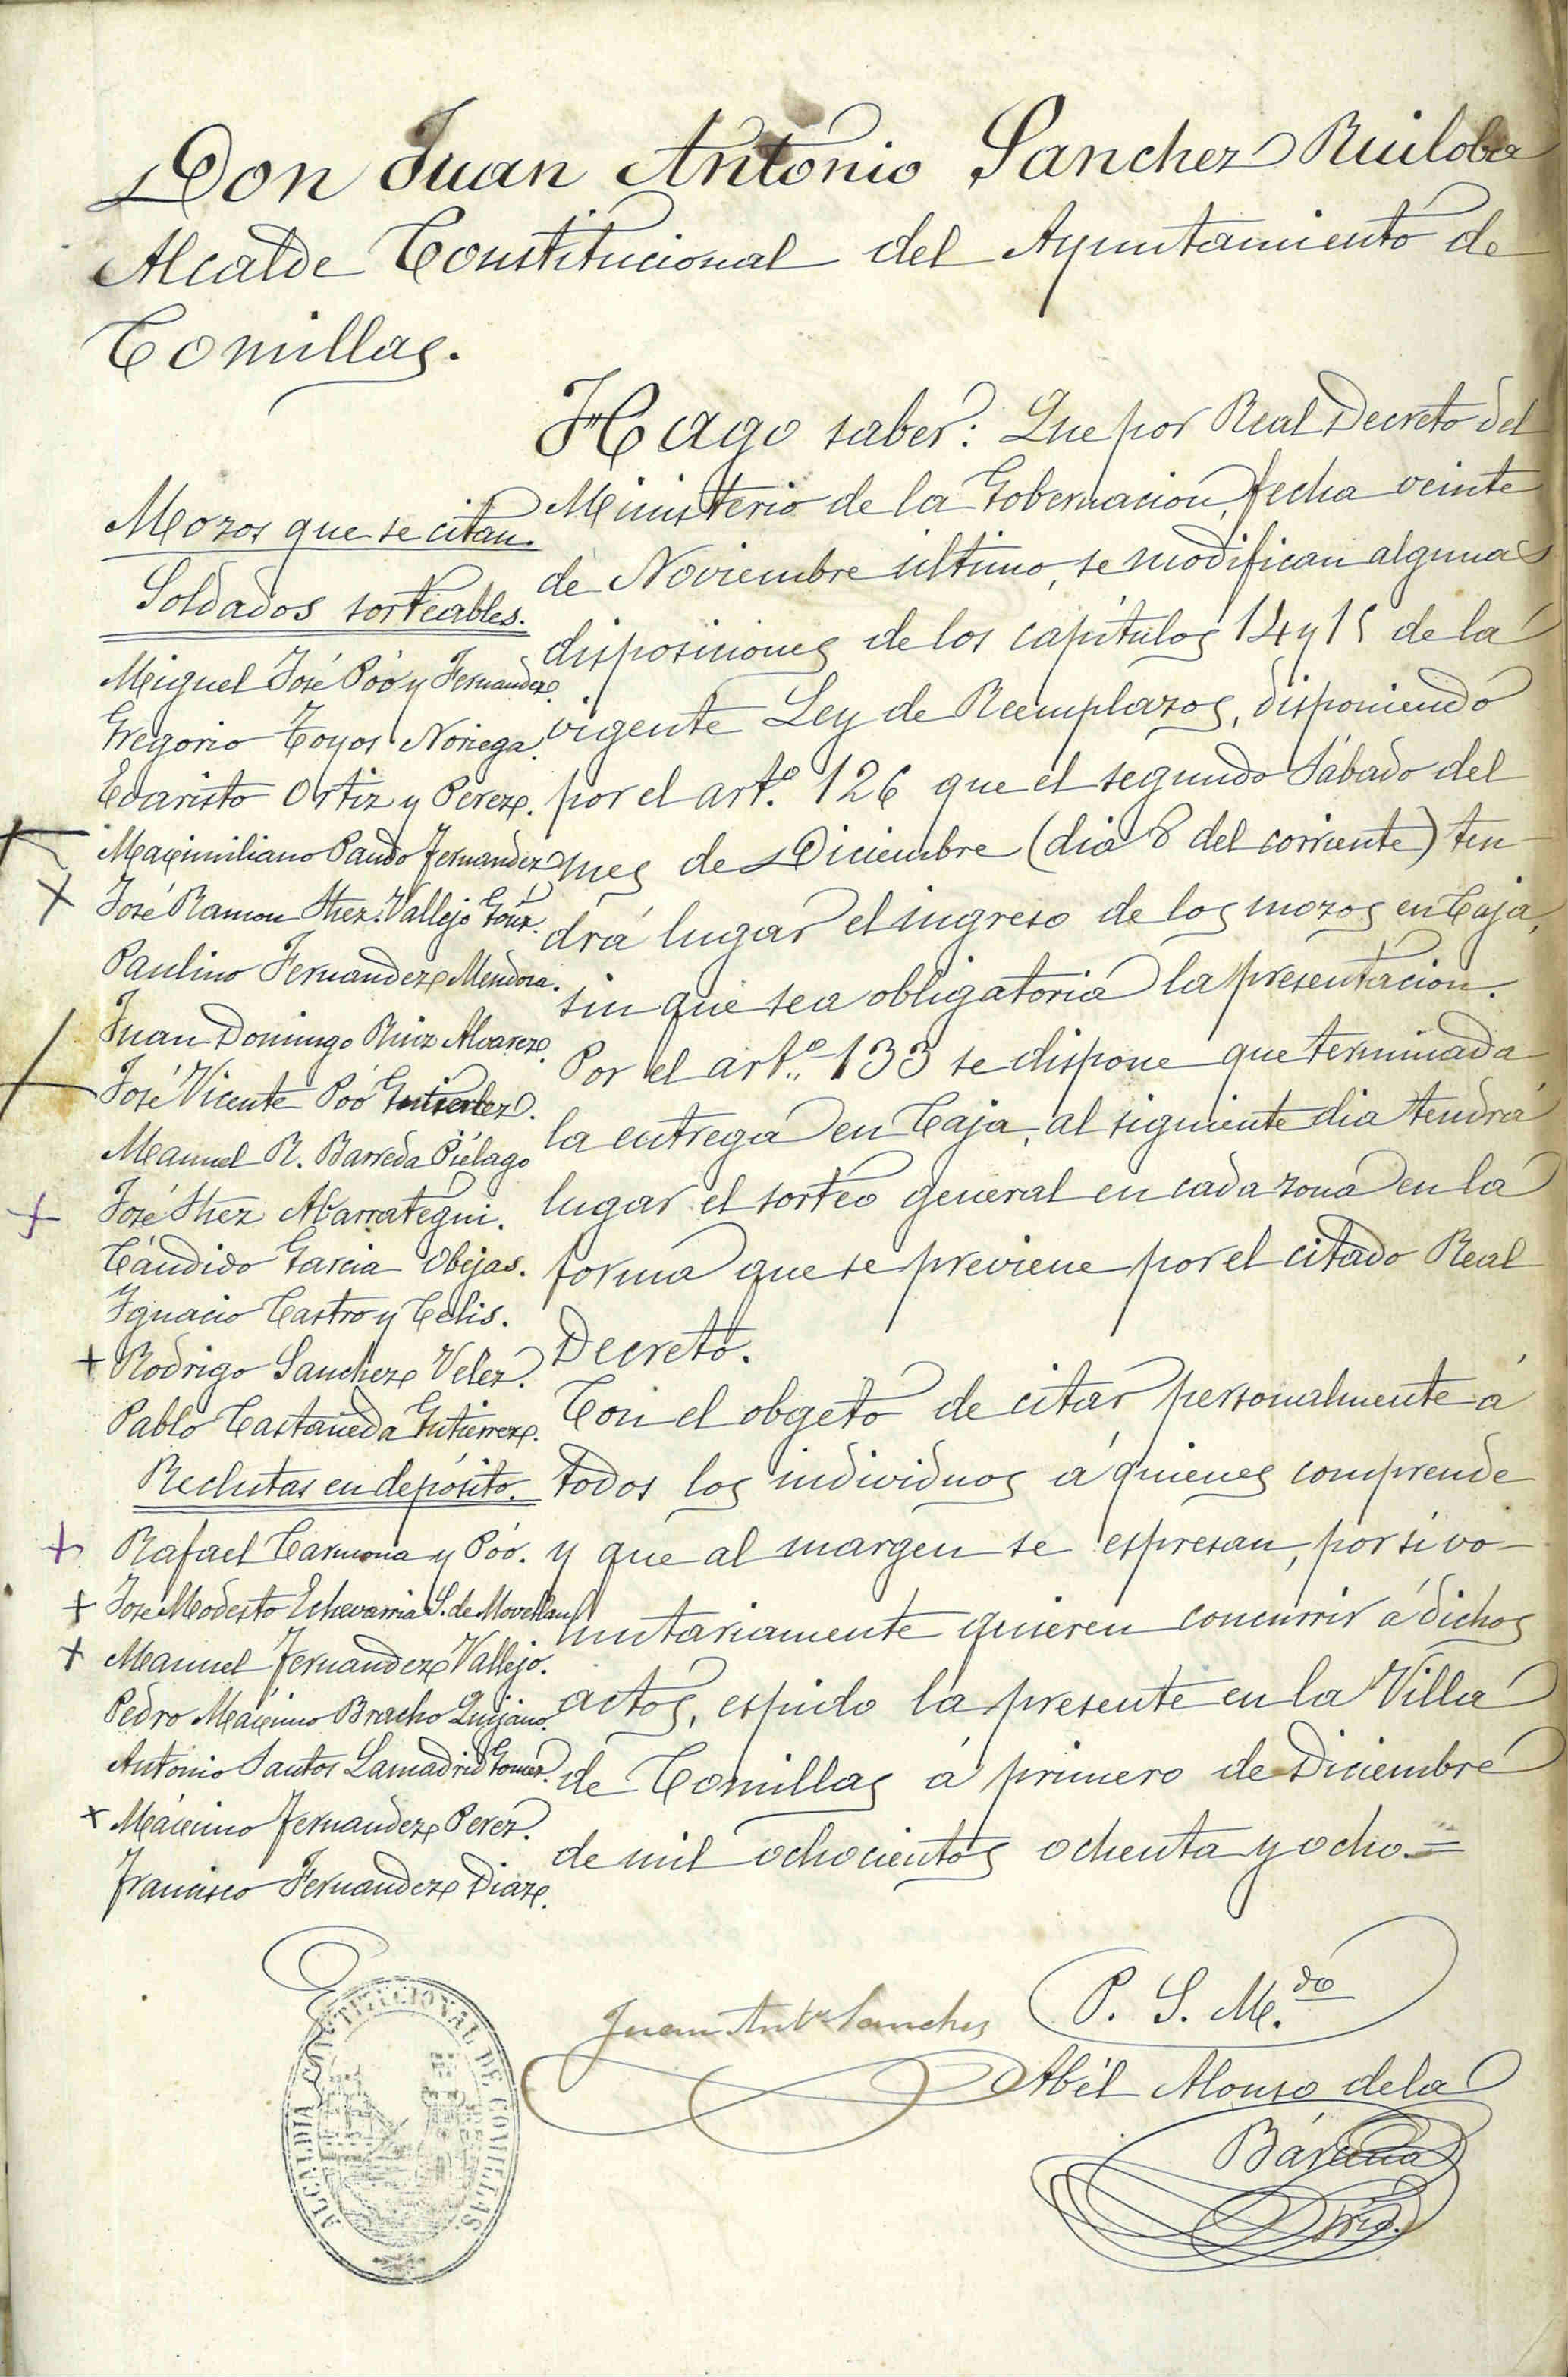 Don Juan Antonio Sanchez Ruiloba
Alcalde Constitucional del Ayuntamiento de
Comillas.
Hago saber: Que por Real Decreto del
Ministerio de la Gobernacion, fecha veinte
de Noviembre último, se modifican algunas
disposiciones de los capítulos 14 y 15 de la
vigente Ley de Reemplazos, disponiendo
por el artº. 126 que el segundo Sábado del
mes de Diciembre (dia 8 del corriente) ten-
drá lugar el ingreso de los mozos en Caja,
sin que sea obligatoria la presentación.
Por el artº. 133 se dispone que terminada
la entrega en Caja, al siguiente dia tendrá
lugar el sorteo general en cada zona en la
forma que se previene por el citado Real
Decreto.
Con el obgeto de citar personalmente á
todos los individuos á quienes comprende
y que al margen se espresan, por si vo-
luntariamente quieren concurrir á dichos
actos, espido la presente en la Villa
de Comillas á primero de Diciembre
de mil ochocientos ochenta y ocho.=
Mozos que se citan.
Soldados sorteables.
Miguel José Póo y Fernandez.
Gregorio Toyos Noriega.
Evaristo Ortiz y Perez.
Maximiliano Pando Fernandez
José Ramon Shez. Vallejo Gónz.
Paulino Fernandez Mendoza.
Juan Domingo Ruiz Alvarez.
José Vicente Póo Gutierrez.
Manuel R. Barreda Piélago
José Shez Abarrategui.
Cándido Garcia Obijas.
Ignacio Castro y Celis.
+ Rodrigo Sanchez Velez.
Pablo Castañeda Gutierrez.
Reclutas en depósito.
+ Rafael Carmona y Póo.
+ José Modesto Echevarria S. de Movellan
+ Manuel Fernandez Vallejo.
Pedro Máximo Bracho Quijano.
Antonio Santos Lamadrid Gomez.
x Máximo Fernandez Perez.
Francisco Fernandez Diaz.
Juan Antº Sanchez
P. S. M.do
Abél Alonso de la
Bárcena
Srio.
ALCALDIA CONSTITUCIONAL DE COMILLAS.